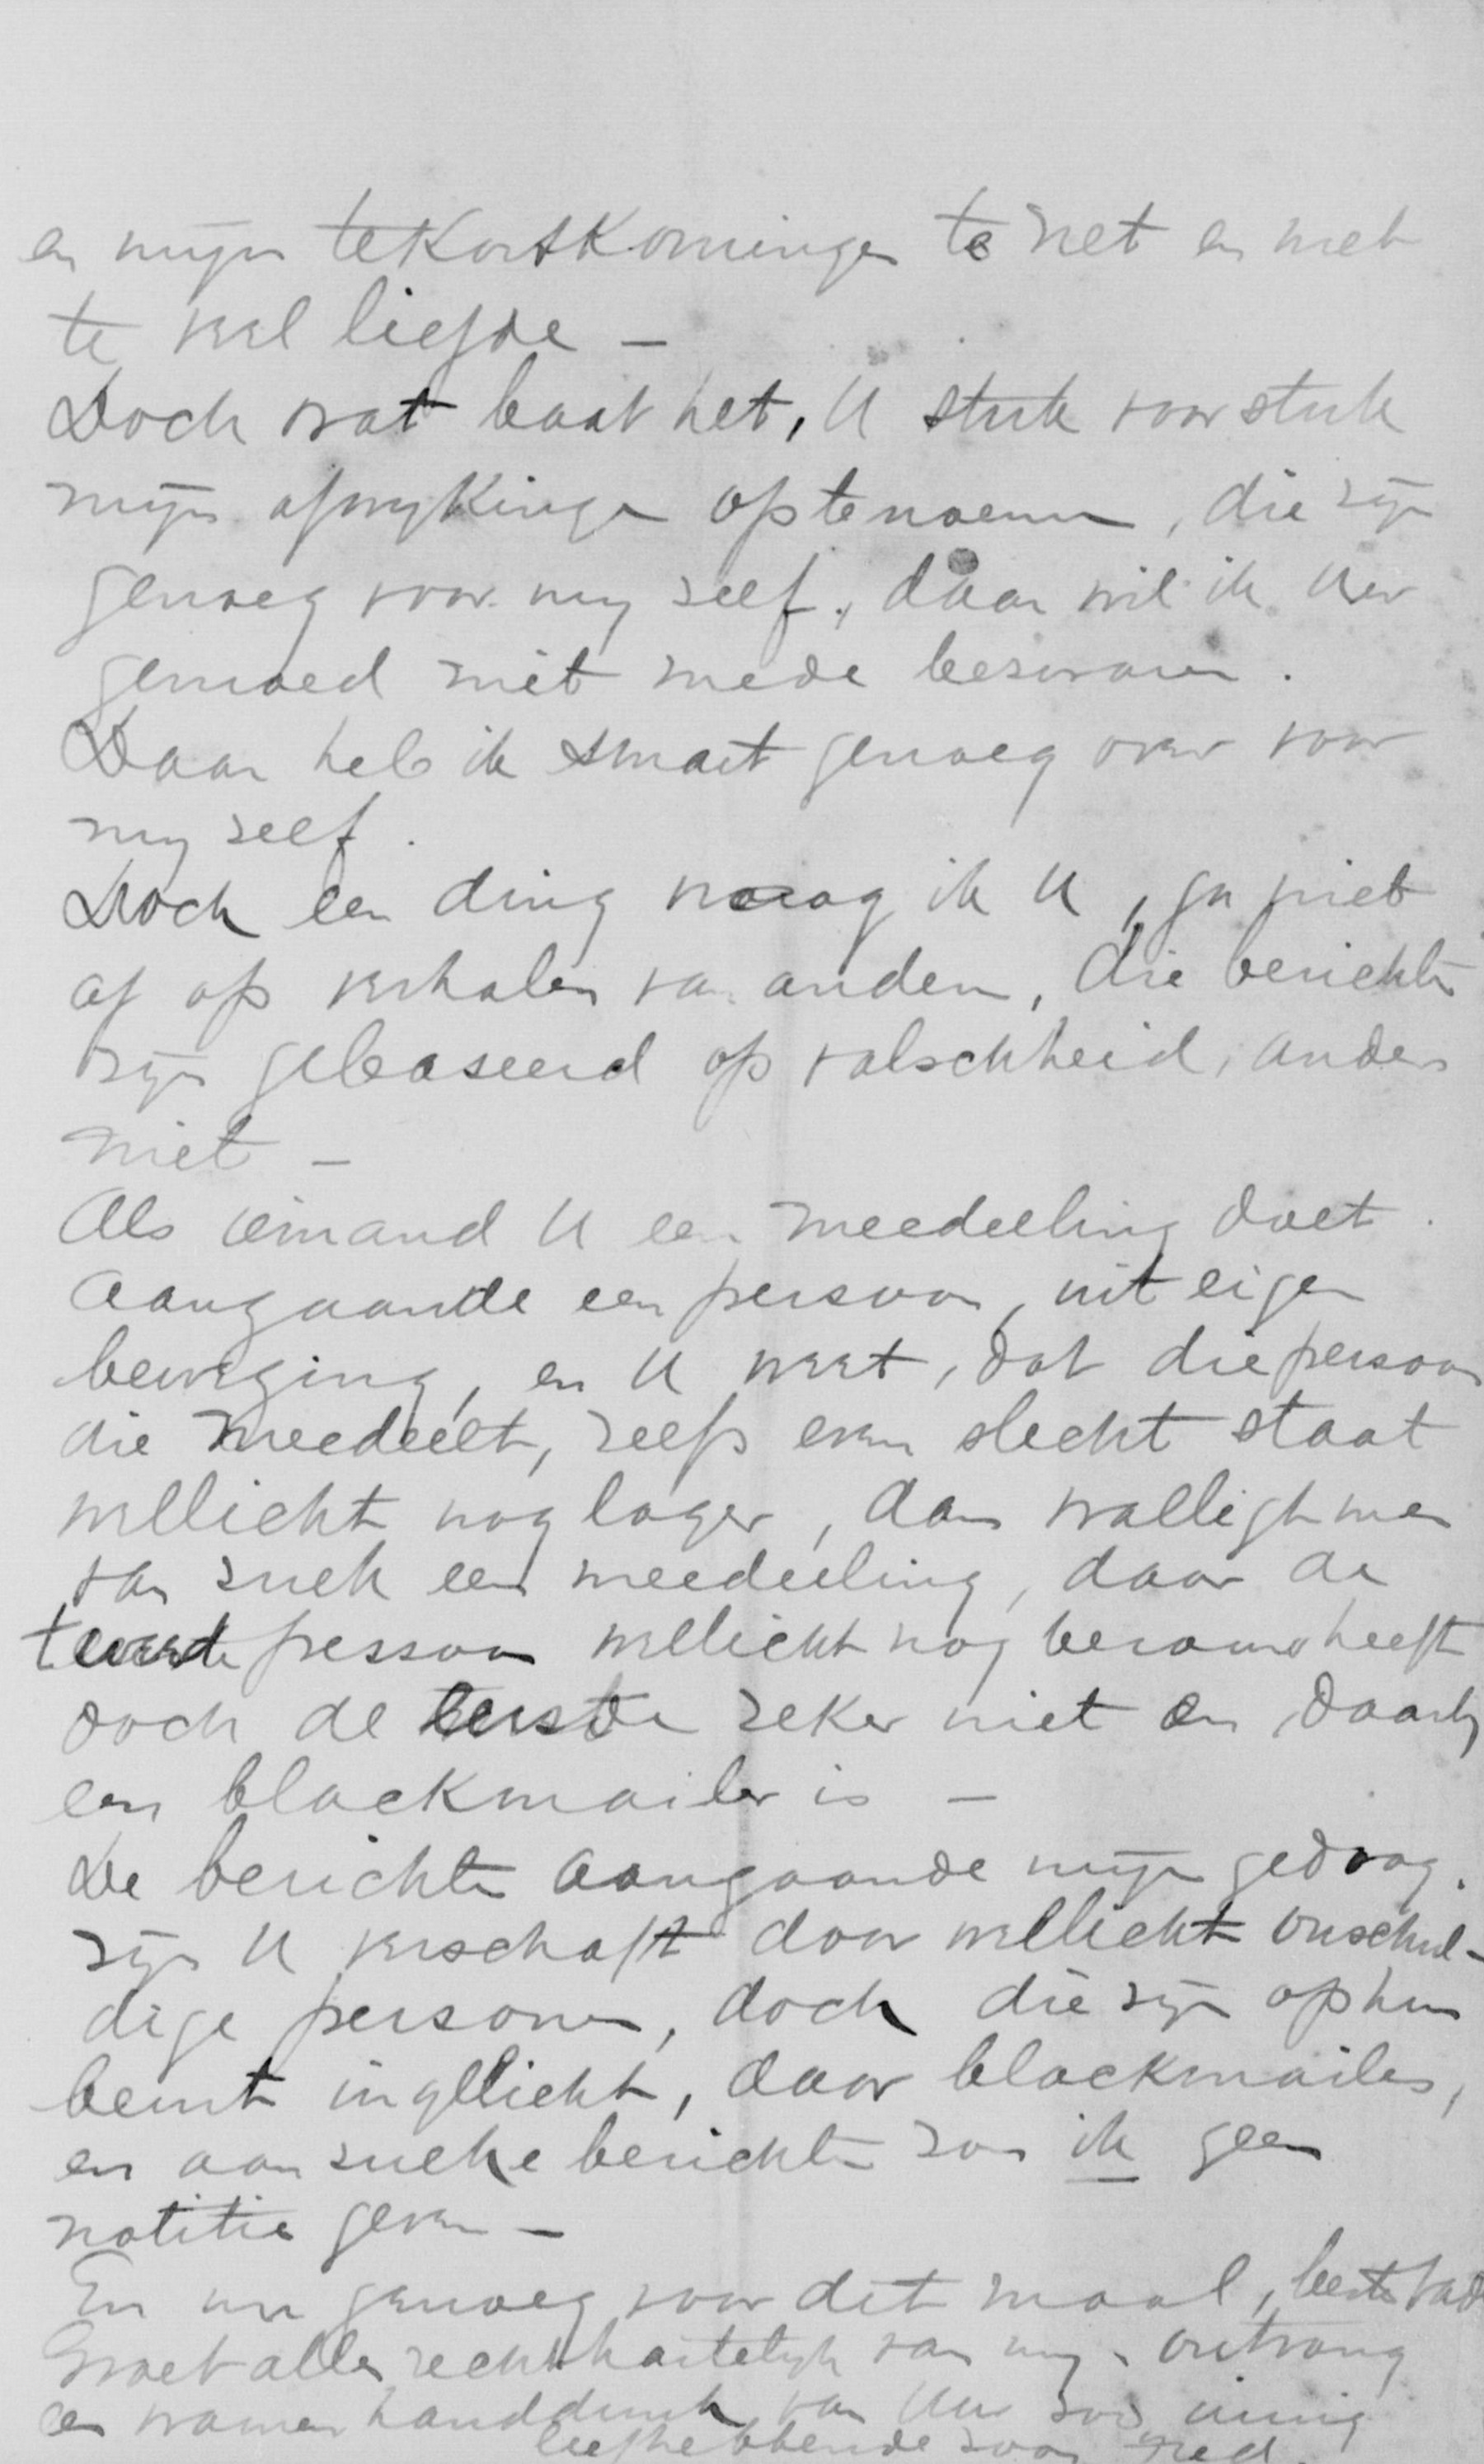 en mijn tekortkomingen te net en met
te veel liefde –
Doch wat baat het, U stuk voor stuk
mijn afwykingen optenoemen, die zijn
genoeg voor my zelf, daar wil ik Uw
gemoed niet mede bezwaren.
Daar heb ik smart genoeg over voor
my zelf.
Doch een ding vraag ik U, ga niet
af op verhalen van anderen, die berichten
zijn gebaseerd op valschheid, anders
niet –
Als iemand U een meedeeling doet
aangaande een persoon, uit eigen
beweging, en U weet, dat die persoon
die meedeelt, zelfs even slecht staat
wellicht nog lager, dan walligt men
van zulk een meedeeling, daar de
tweede persoon wellicht nog berouw heeft
doch de eerste zeker niet en daarby
een blackmailer is –
De berichten aangaande mijn gedrag.
zijn U verschaft door wellicht onschul-
dige personen, doch die zijn op hun
beurt ingelicht, door blackmailers,
en aan zulke berichten zou ik geen
notitie geven –
En nu genoeg voor dit maal, beste Vader
Groet allen recht hartelyk van my. ontvang
een warmen handdruk van Uw zoo innig
liefhebbende zoon